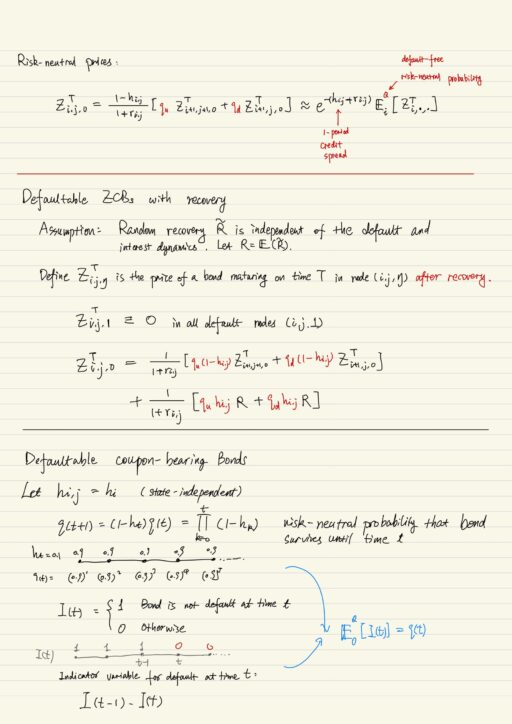 default-free
Risk-neutral prices:
risk-neutral probability
Z^T_{i,j,0} = (1-h_{i,j})/(1+r_{i,j}) [q_u Z^T_{i+1,j+1,0} + q_d Z^T_{i+1,j,0}] ≈ e^{-(h_{i,j}+r_{i,j})} E^Q_i [Z^T_{i,·,·}]
1-period
credit
spread
Defaultable ZCBs with recovery
Assumption: Random recovery R̃ is independent of the default and
interest dynamics. Let R = E(R̃).
Define Z^T_{i,j,η} is the price of a bond maturing on time T in node (i,j,η) after recovery.
Z^T_{i,j,1} ≡ 0 in all default nodes (i,j,1)
Z^T_{i,j,0} = 1/(1+r_{i,j}) [q_u(1-h_{i,j}) Z^T_{i+1,j+1,0} + q_d(1-h_{i,j}) Z^T_{i+1,j,0}]
+ 1/(1+r_{i,j}) [q_u h_{i,j} R + q_d h_{i,j} R]
Defaultable coupon-bearing Bonds
Let h_{i,j} = h_i (state-independent)
q(t+1) = (1-h_t) q(t) = ∏^t_{k=0} (1-h_k) risk-neutral probability that bond
survives until time t
h_t=0.1 0.9 0.9 0.9 0.9 0.9
q(t)= (0.9)^1 (0.9)^2 (0.9)^3 (0.9)^4 (0.9)^5
I(t) = { 1 Bond is not default at time t
0 otherwise
E^Q_0 [I(t)] = q(t)
I(t) 1 1 1 0 0
t-1 t
Indicator variable for default at time t:
I(t-1) - I(t)